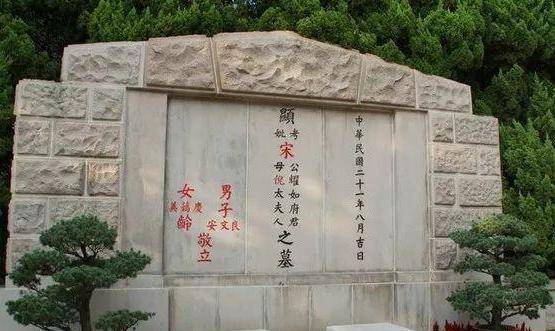 中華民國二十一年八月吉日
顯
考妣
宋
公耀如府君
母倪太夫人
之墓
男子
良文安
女
慶藹美
齡
敬立